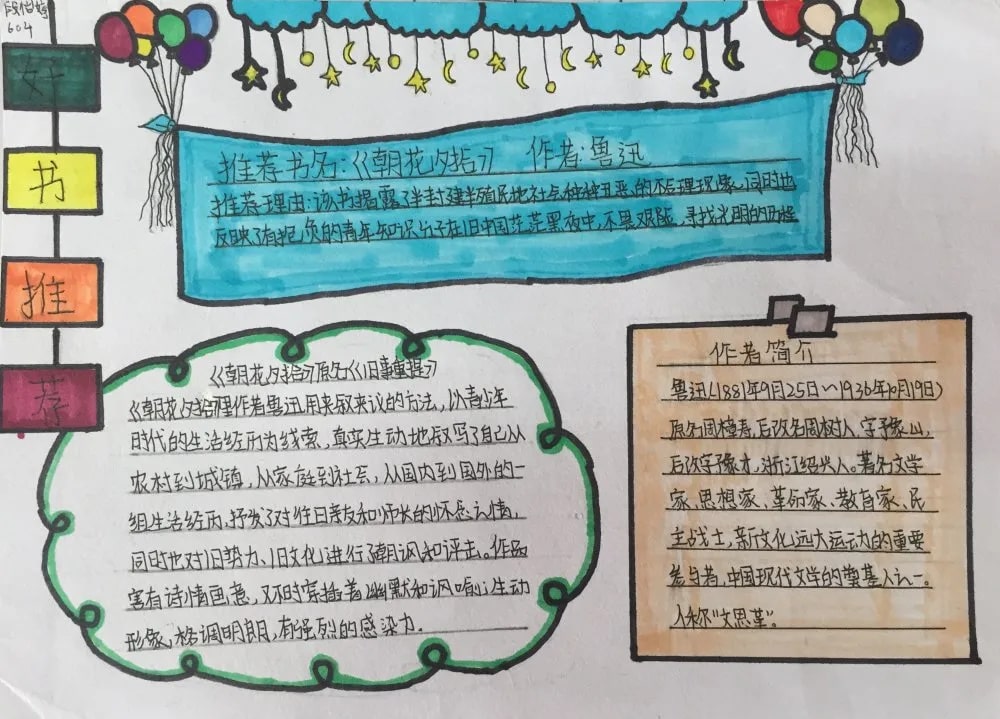 604
好
书
推
荐
推荐书名:《朝花夕拾》 作者:鲁迅
推荐理由:该书揭露了半封建半殖民地社会种种丑恶的不合理现象,同时也
反映了有抱负的青年知识分子在旧中国茫茫黑夜中,不畏艰险,寻找光明的历程
《朝花夕拾》原名《旧事重提》
《朝花夕拾》是作者鲁迅用来叙来议的方法,以青少年
时代的生活经历为线索,真实生动地叙写了自己从
农村到城镇,从家庭到社会,从国内到国外的一
组生活经历,抒发了对往日亲友和师长的怀念之情,
同时也对旧势力、旧文化进行了嘲讽和评击。作品
富有诗情画意,又不时穿插着幽默和讽喻;生动
形象,格调明朗,有强烈的感染力.
作者简介
鲁迅(1881年9月25日~1936年10月19日)
原名周樟寿,后改名周树人,字豫山,
后改字豫才,浙江绍兴人。著名文学
家、思想家、革命家、教育家、民
主战士,新文化远大运动的重要
参与者,中国现代文学的奠基人之一。
人称"文思革"。